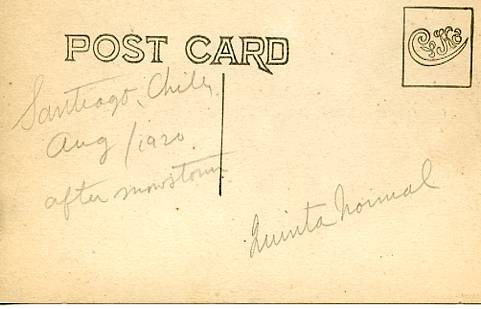 POST CARD
Santiago, Chile,
Aug/1920
after snowstorm
Quinta Normal